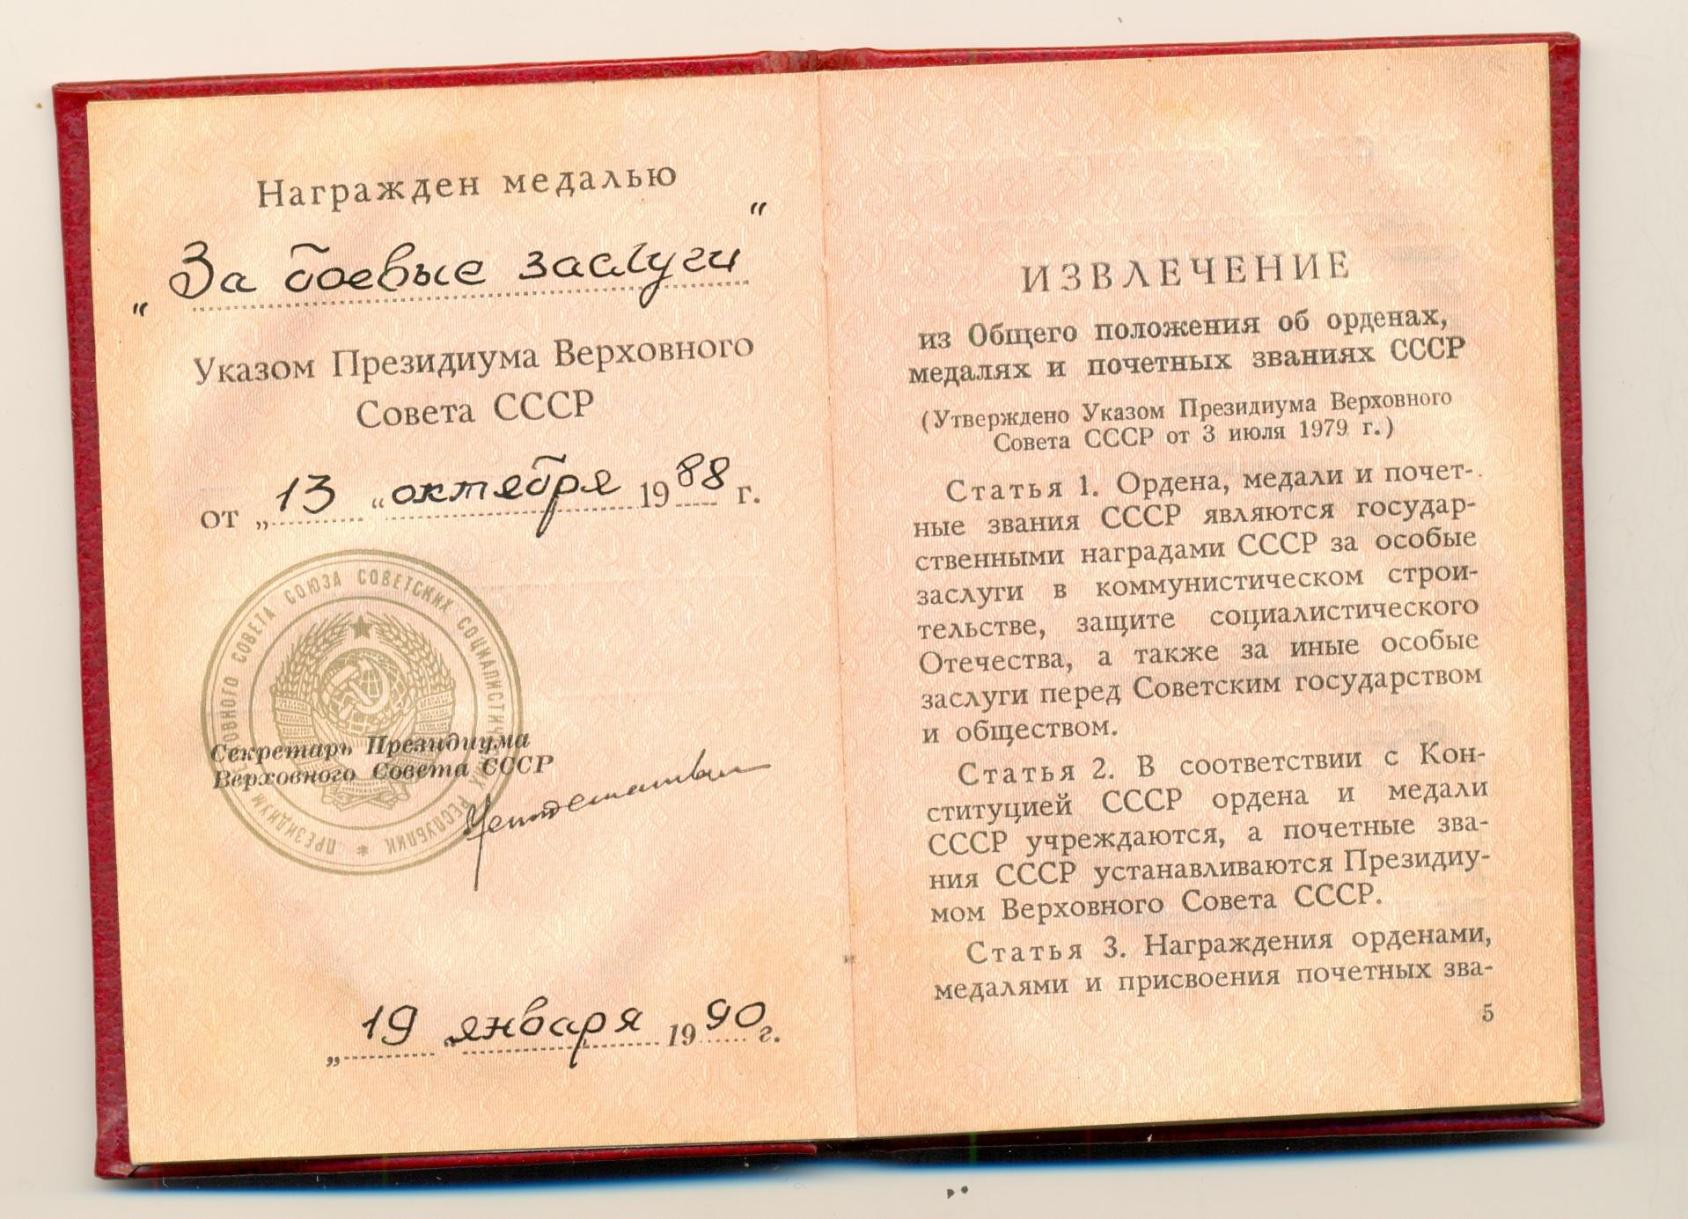 Награжден медалью
„За боевые заслуги“
Указом Президиума Верховного
Совета СССР
от „13“ октября 1988 г.
ПРЕЗИДИУМ ВЕРХОВНОГО СОВЕТА СОЮЗА СОВЕТСКИХ СОЦИАЛИСТИЧЕСКИХ РЕСПУБЛИК
Секретарь Президиума
Верховного Совета СССР
„19“ января 1990 г.
ИЗВЛЕЧЕНИЕ
из Общего положения об орденах,
медалях и почетных званиях СССР
(Утверждено Указом Президиума Верховного
Совета СССР от 3 июля 1979 г.)
Статья 1. Ордена, медали и почет-
ные звания СССР являются государ-
ственными наградами СССР за особые
заслуги в коммунистическом строи-
тельстве, защите социалистического
Отечества, а также за иные особые
заслуги перед Советским государством
и обществом.
Статья 2. В соответствии с Кон-
ституцией СССР ордена и медали
СССР учреждаются, а почетные зва-
ния СССР устанавливаются Президиу-
мом Верховного Совета СССР.
Статья 3. Награждения орденами,
медалями и присвоения почетных зва-
5